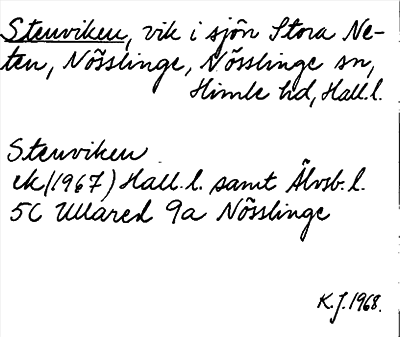 Stenviken, vik i sjön Stora Ne-
ten, Nösslinge, Nösslinge sn,
Himle hd, Hall. l.
Stenviken
ek (1967) Hall. l. samt Älvsb. l.
5C Ullared 9a Nösslinge
K.J. 1968.